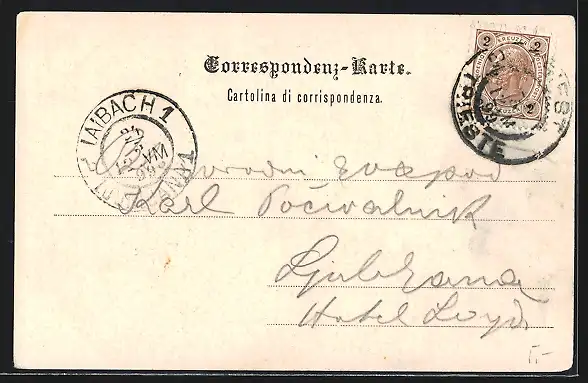 Correspondenz-Karte.
Cartolina di corrispondenza.
2 KREUZER 2
2
TRIESTE
LAIBACH 1
LJUBLJANA 1
Blagorodni gospod
Karl Počivalnik
Ljubljana
Hotel Lloyd